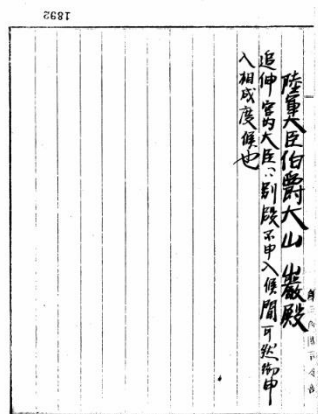 1892
陸軍大臣伯爵大山巌殿
追伸宮内大臣ハ別段不申入候間可然御申
入相成度候也